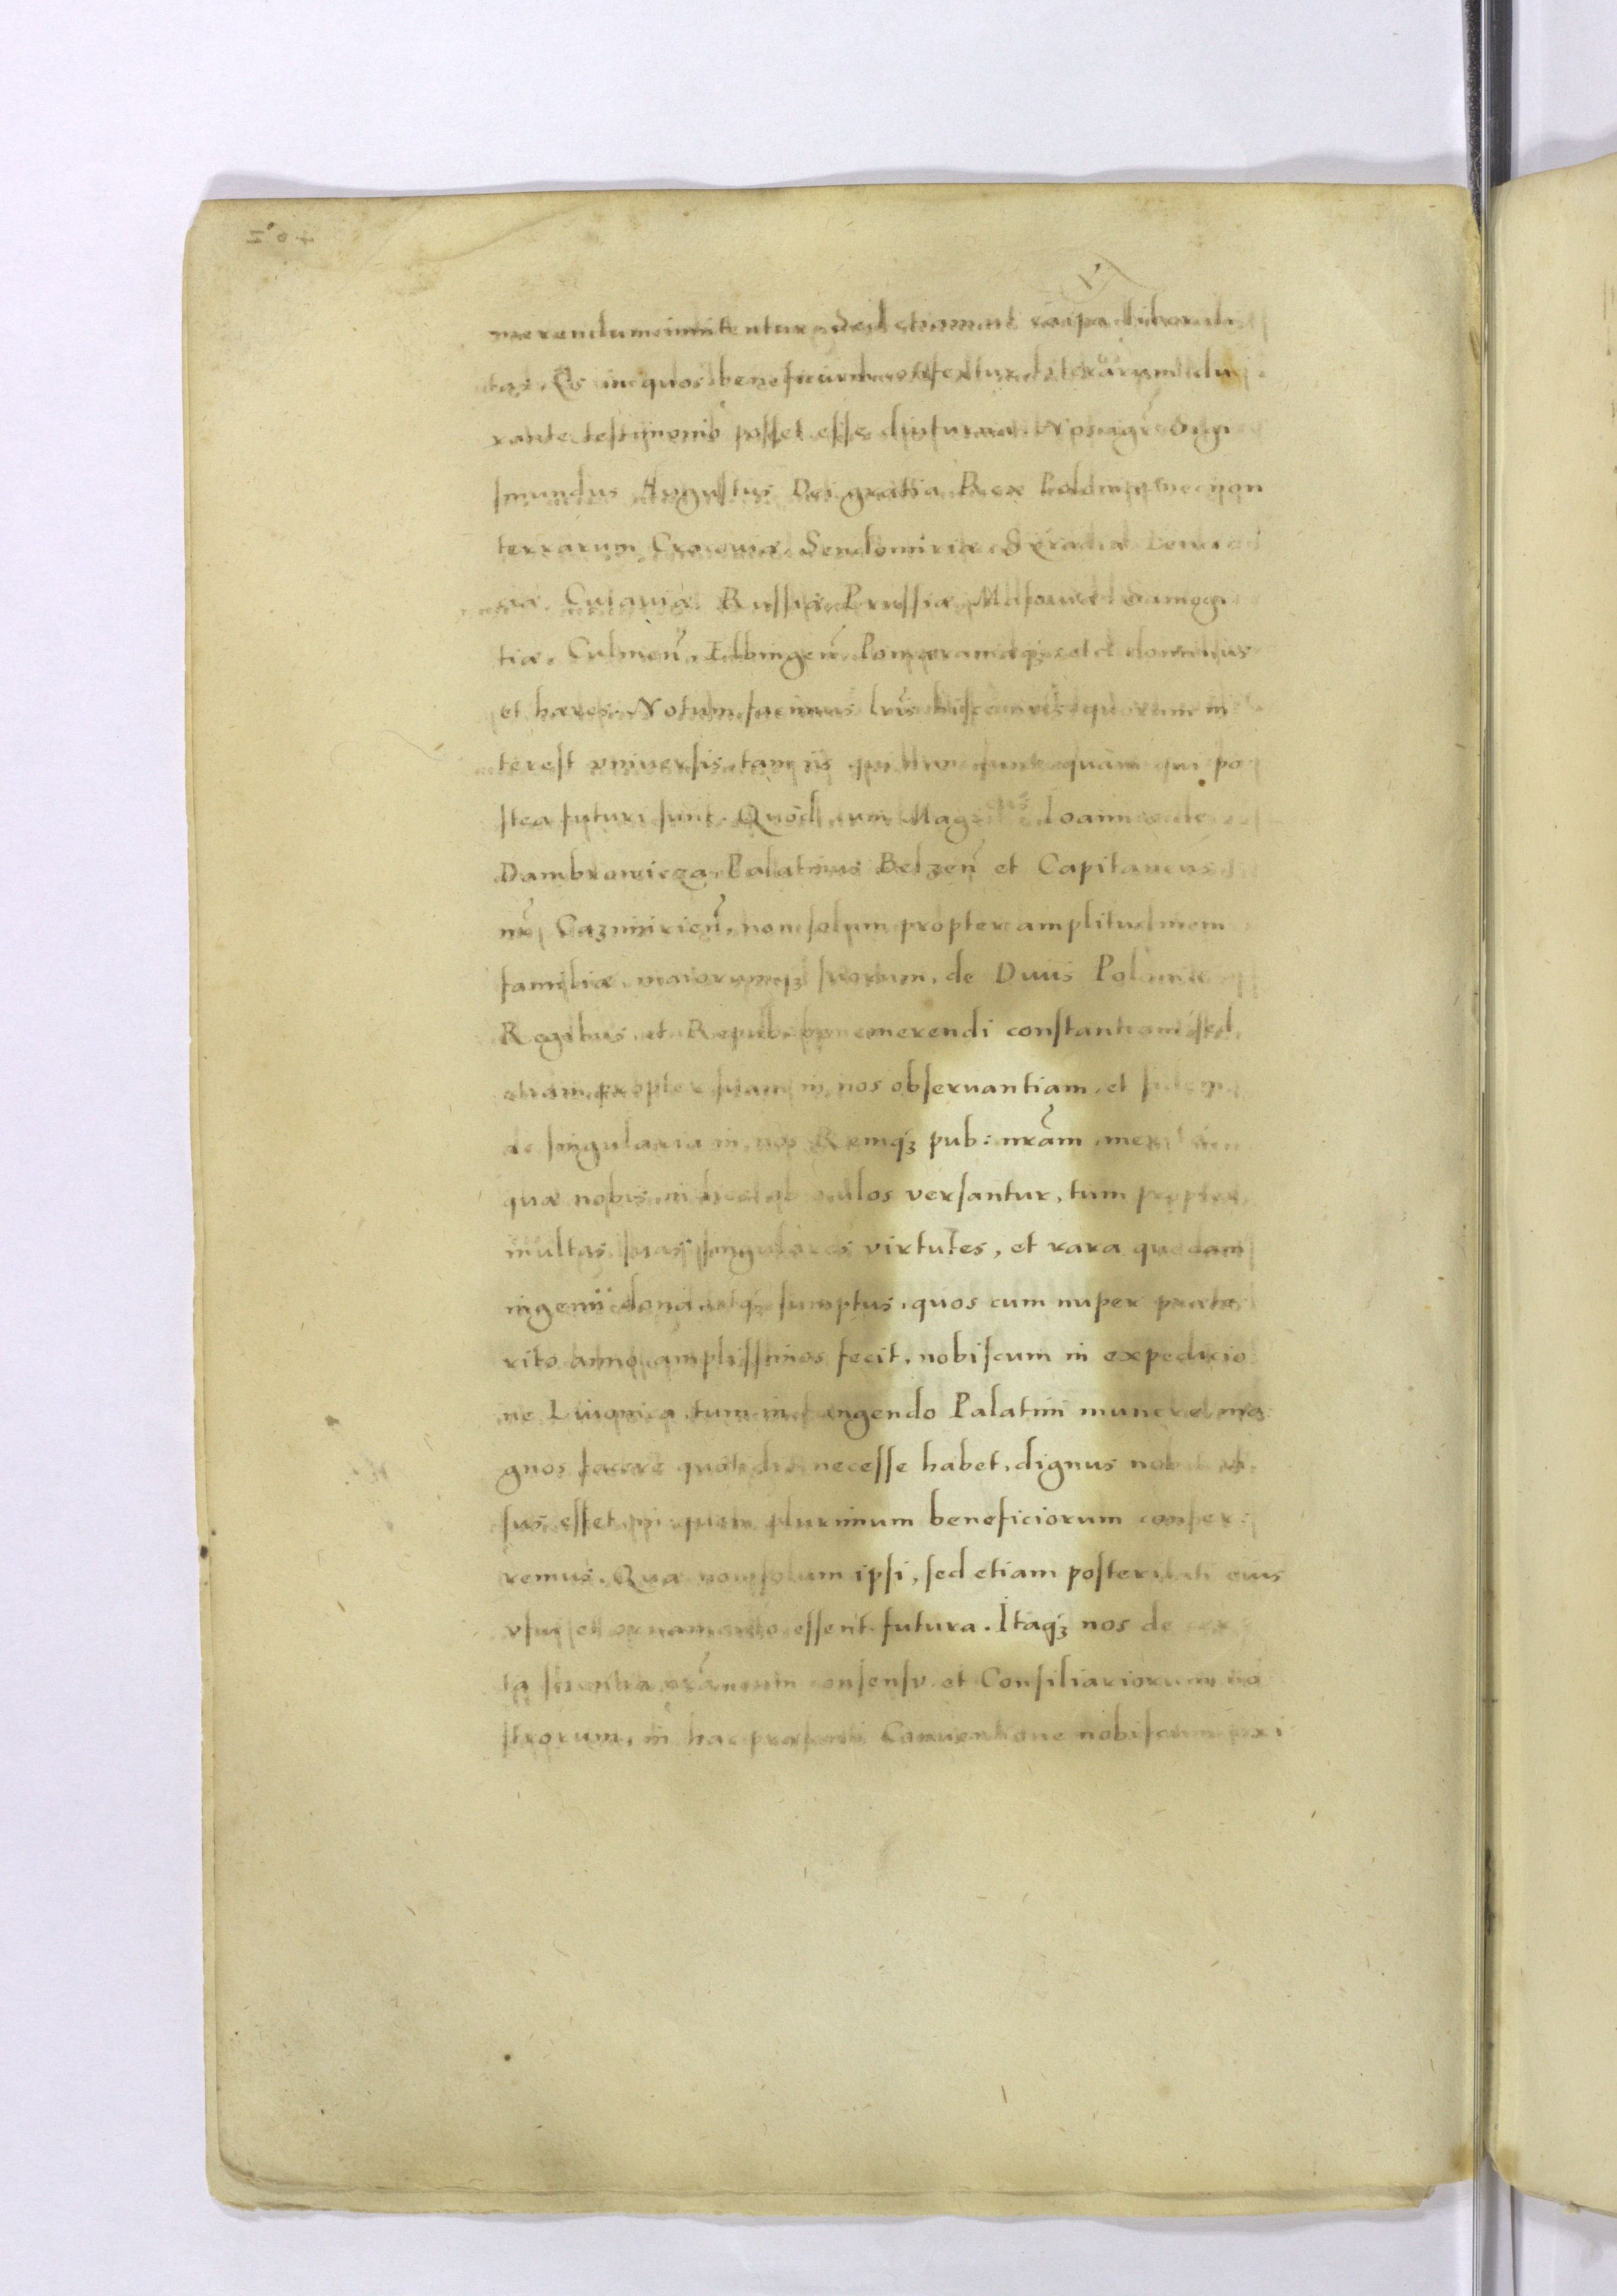 merendum inuitentur. Sed etiam ut ipsa liberali
tas. Eis in quos beneficium confertur, literarum du
rante testimonio posset esse diuturna. Nos igr̃ Sigi
smundus Augustus Dei gratia Rex Poloniæ, necnon
terrarum Cracouiæ, Sendomiriæ, Siradiæ, Lenci
ciæ, Cuiauiæ, Russiæ, Prussiæ, Masouiæ, Samogi
tiæ, Culmeñ, Elbingeñ, Pomeraniæqꝫ etc̃ dominus
et hæres. Notum facimus lris̃ hisce nris̃ quorum in
terest vniuersis, tam iis qui nunc sunt quàm qui po
stea futuri sunt. Quòd cum Mag Ioannes de
Dambrowicza, Palatinus Belzeñ et Capitaneus
nr̃ Cazimirieñ, non solum propter amplitudinem
familiæ, maiorumqꝫ suorum, de Diuis Poloniæ
Regibus, et Repub. bene merendi constantiam, sed
etiam propter suam in nos obseruantiam, et fidem
ac singularia in nos Remqꝫ pub: nrãm merita
quæ nobis ob oculos versantur, tum propter
multas suas singulares virtutes, et rara quædam
ingenii dona, atqꝫ sumptus, quos cum nuper præte
rito anno amplissimos fecit, nobiscum in expedicio
ne Liuonica, tum in fungendo Palatini munere ma
gnos facere quotidie necesse habet, dignus nobis vi
sus esset, in quem plurimum beneficiorum confer:
remus. Quæ non solum ipsi, sed etiam posteritati eius
vsui et ornamento essent futura. Itaqꝫ nos de cer
ta scientia consensu et Consiliariorum no
strorum, in hac præsenti Conuentione nobiscum exi